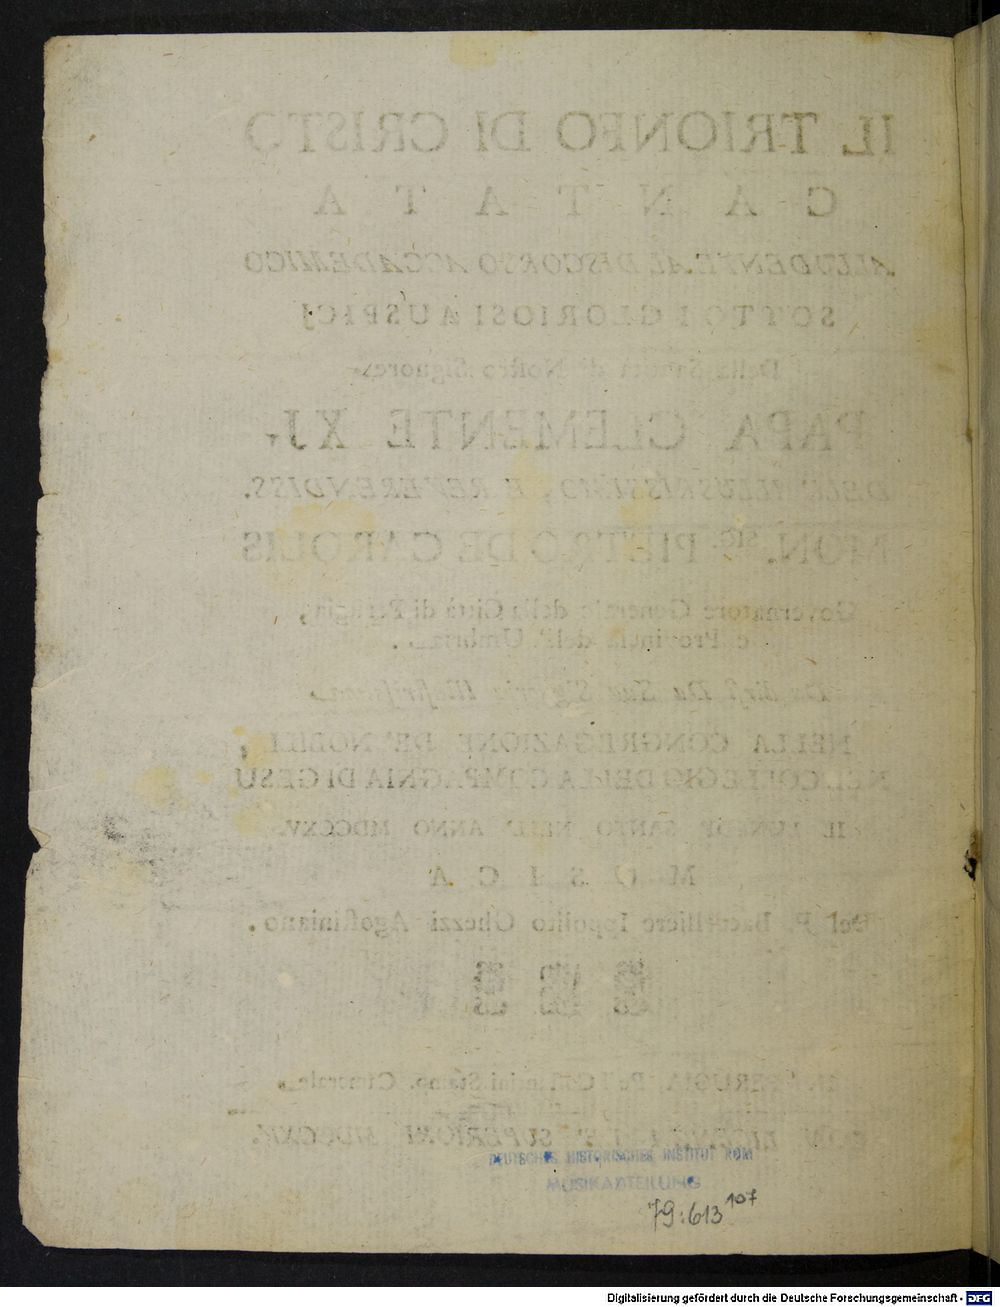 IL TRIONFO DI CRISTO
CANTATA
ALLUDENTE AL DISCORSO ACCADEMICO
SOTTO I GLORIOSI AUSPICJ
Della Santità di Nostro Signore
PAPA CLEMENTE XJ.
DELL' ILLUSTRISSIMO, E REVERENDISS.
MON.SIG. PIETRO DE CAROLIS
Governatore Generale della Città di Perugia,
e Provincia dell' Umbria.
Da Sua Signoria Illustrissima
NELLA CONGREGAZIONE DE' NOBILI,
NEL COLLEGIO DELLA COMPAGNIA DI GESU
IL LUNEDÌ SANTO NELL' ANNO MDCCXV.
MUSICA
Del P. Baccelliere Ippolito Ghezzi Agostiniano.
IN PERUGIA, Pe'l Costantini Stamp. Camerale.
SUPERIORI MDCCXV.
DEUTSCHES HISTORISCHES INSTITUT ROM
MUSIKABTEILUNG
79:613 107
Digitalisierung gefördert durch die Deutsche Forschungsgemeinschaft - DFG